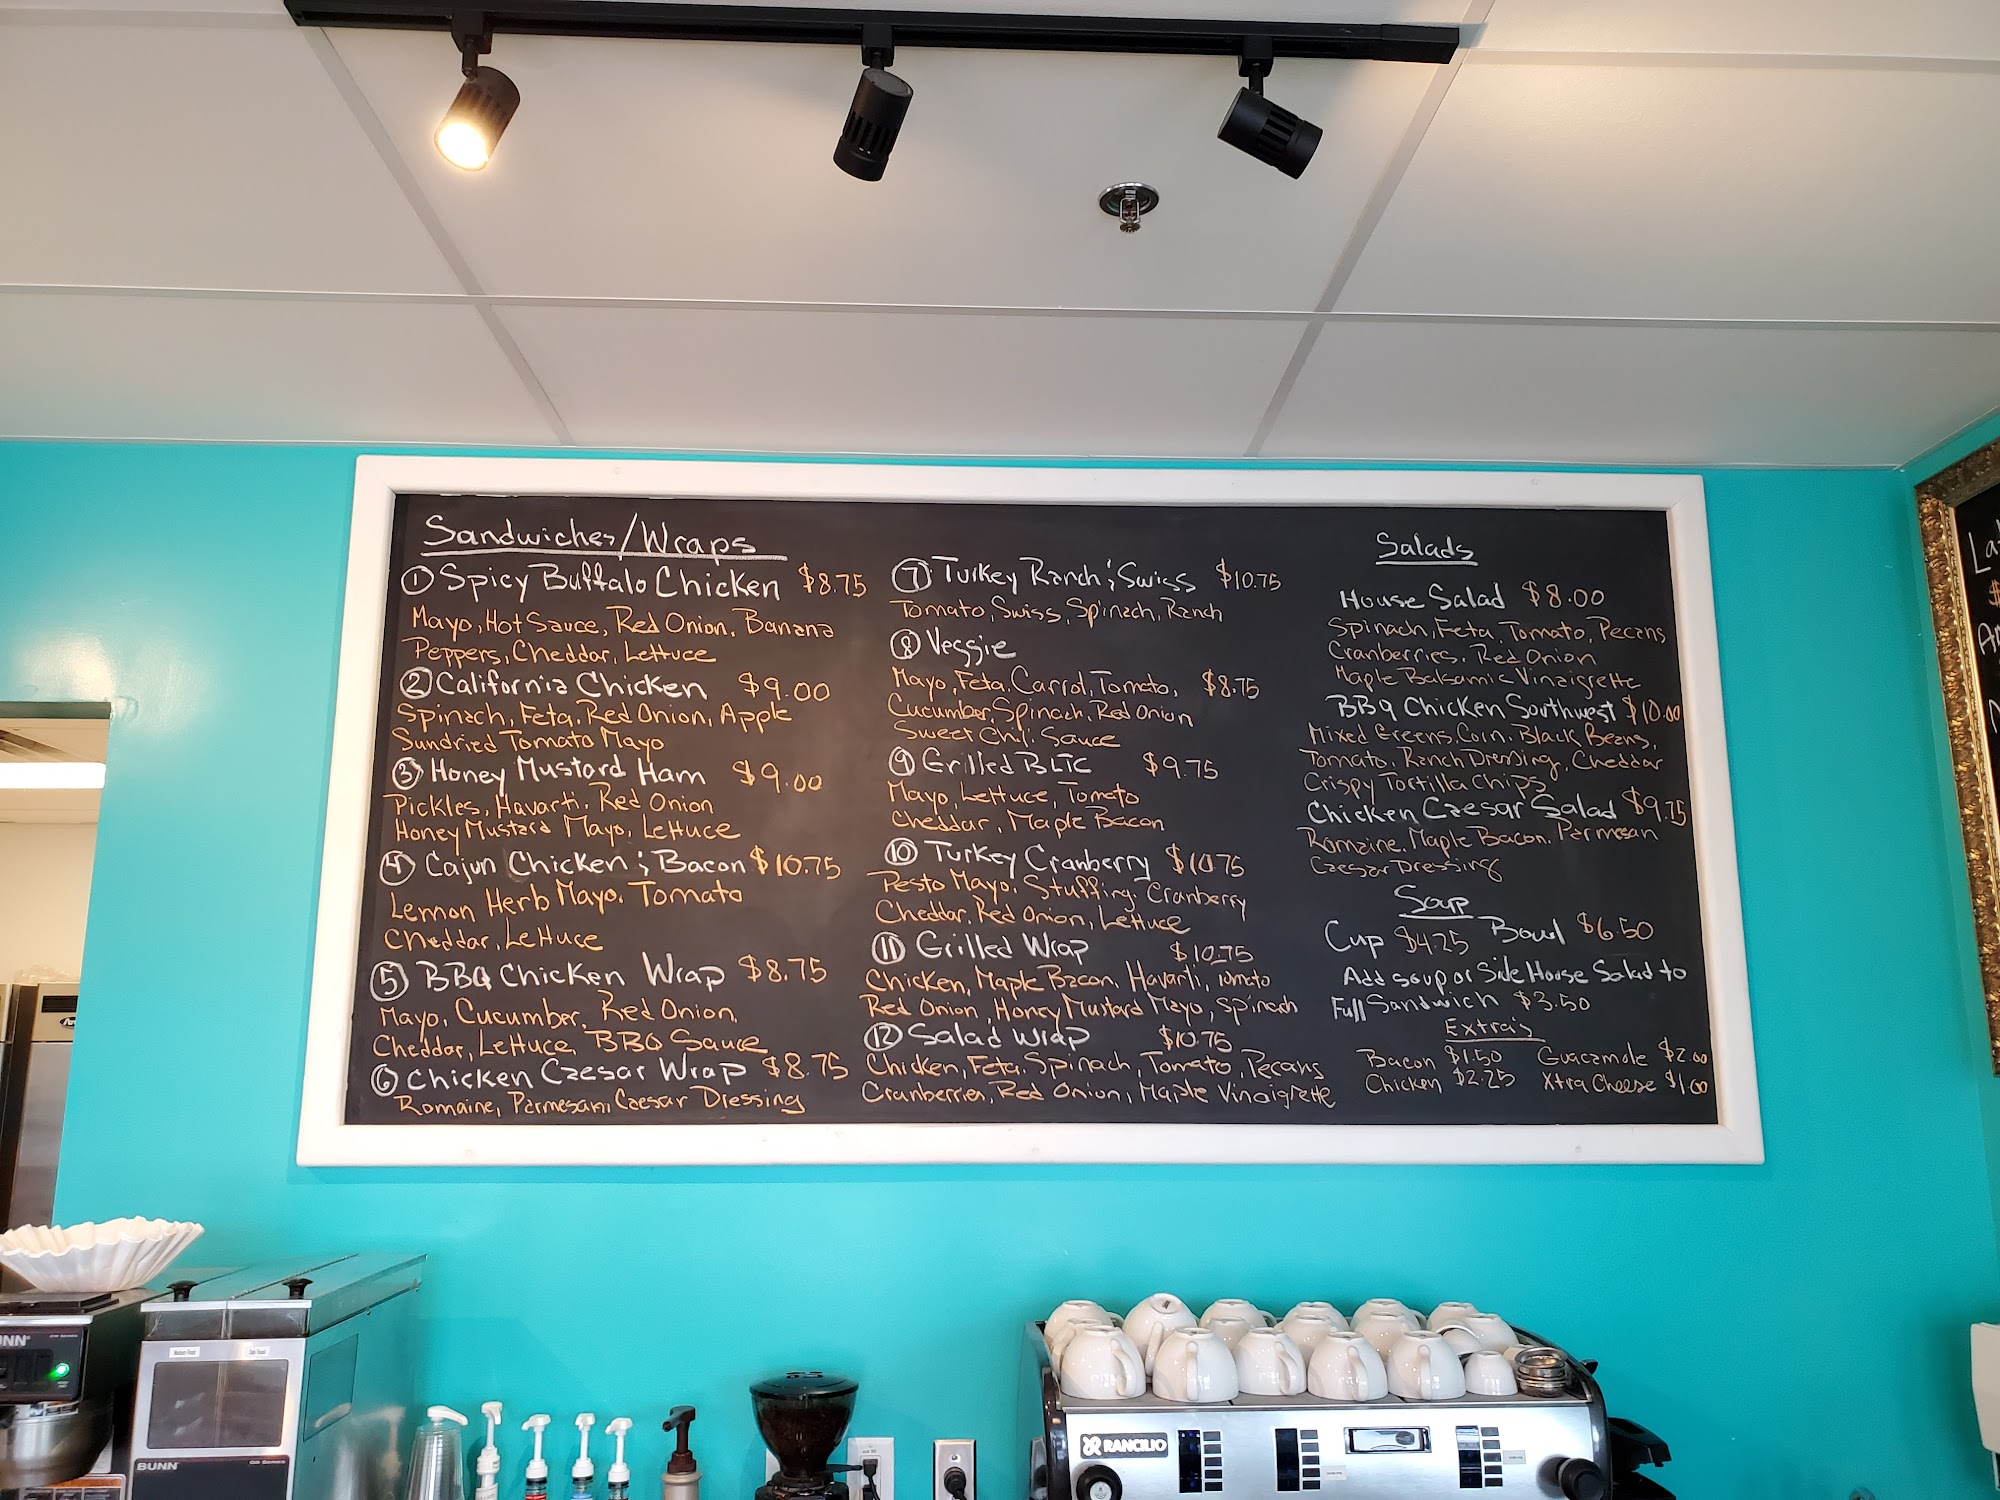 Sandwiches/Wraps
① Spicy Buffalo Chicken $8.75
Mayo, Hot Sauce, Red Onion, Banana
Peppers, Cheddar, Lettuce
② California Chicken $9.00
Spinach, Feta, Red Onion, Apple
Sundried Tomato Mayo
③ Honey Mustard Ham $9.00
Pickles, Havarti, Red Onion
Honey Mustard Mayo, Lettuce
④ Cajun Chicken & Bacon $10.75
Lemon Herb Mayo, Tomato
Cheddar, Lettuce
⑤ BBQ Chicken Wrap $8.75
Mayo, Cucumber, Red Onion,
Cheddar, Lettuce, BBQ Sauce
⑥ Chicken Caesar Wrap $8.75
Romaine, Parmesan, Caesar Dressing
⑦ Turkey Ranch & Swiss $10.75
Tomato, Swiss, Spinach, Ranch
⑧ Veggie
Mayo, Feta, Carrot, Tomato, $8.75
Cucumber, Spinach, Red Onion
Sweet Chili Sauce
⑨ Grilled BLTC $9.75
Mayo, Lettuce, Tomato
Cheddar, Maple Bacon
⑩ Turkey Cranberry $10.75
Pesto Mayo, Stuffing, Cranberry
Cheddar, Red Onion, Lettuce
⑪ Grilled Wrap $10.75
Chicken, Maple Bacon, Havarti, Tomato
Red Onion, Honey Mustard Mayo, Spinach
⑫ Salad Wrap $10.75
Chicken, Feta, Spinach, Tomato, Pecans
Cranberries, Red Onion, Maple Vinaigrette
Salads
House Salad $8.00
Spinach, Feta, Tomato, Pecans
Cranberries, Red Onion
Maple Balsamic Vinaigrette
BBQ Chicken Southwest $10.00
Mixed Greens, Corn, Black Beans,
Tomato, Ranch Dressing, Cheddar
Crispy Tortilla Chips
Chicken Caesar Salad $9.75
Romaine, Maple Bacon, Parmesan
Caesar Dressing
Soup
Cup $4.25 Bowl $6.50
Add soup or Side House Salad to
Full Sandwich $3.50
Extra's
Bacon $1.50 Guacamole $2.00
Chicken $2.25 Xtra Cheese $1.00
BUNN
RANCILIO